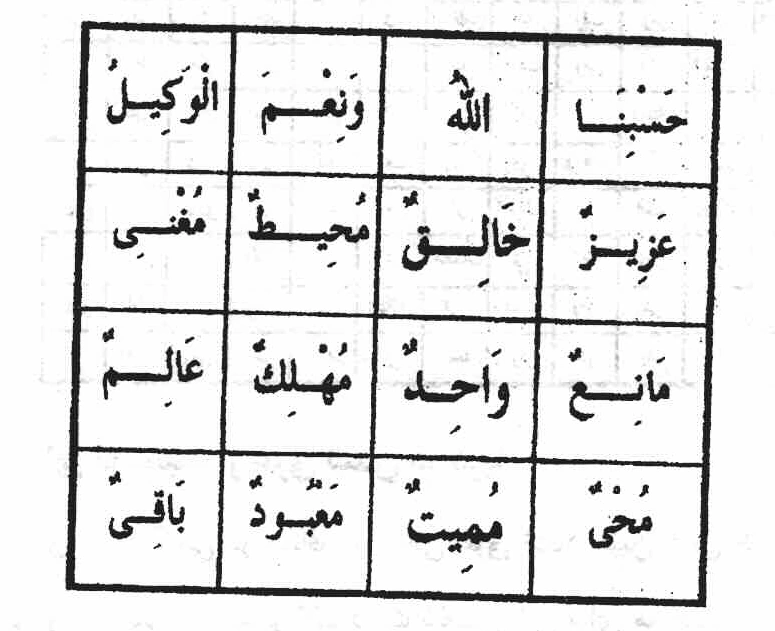 حَسْبُنَا اللّٰهُ وَنِعْمَ الْوَكِيلُ
عَزِيزٌ خَالِقٌ مُحِيطٌ مُغْنِى
مَانِعٌ وَاحِدٌ مُهْلِكٌ عَالِمٌ
مُحْىٌ مُمِيتٌ مَعْبُودٌ بَاقِىٌ